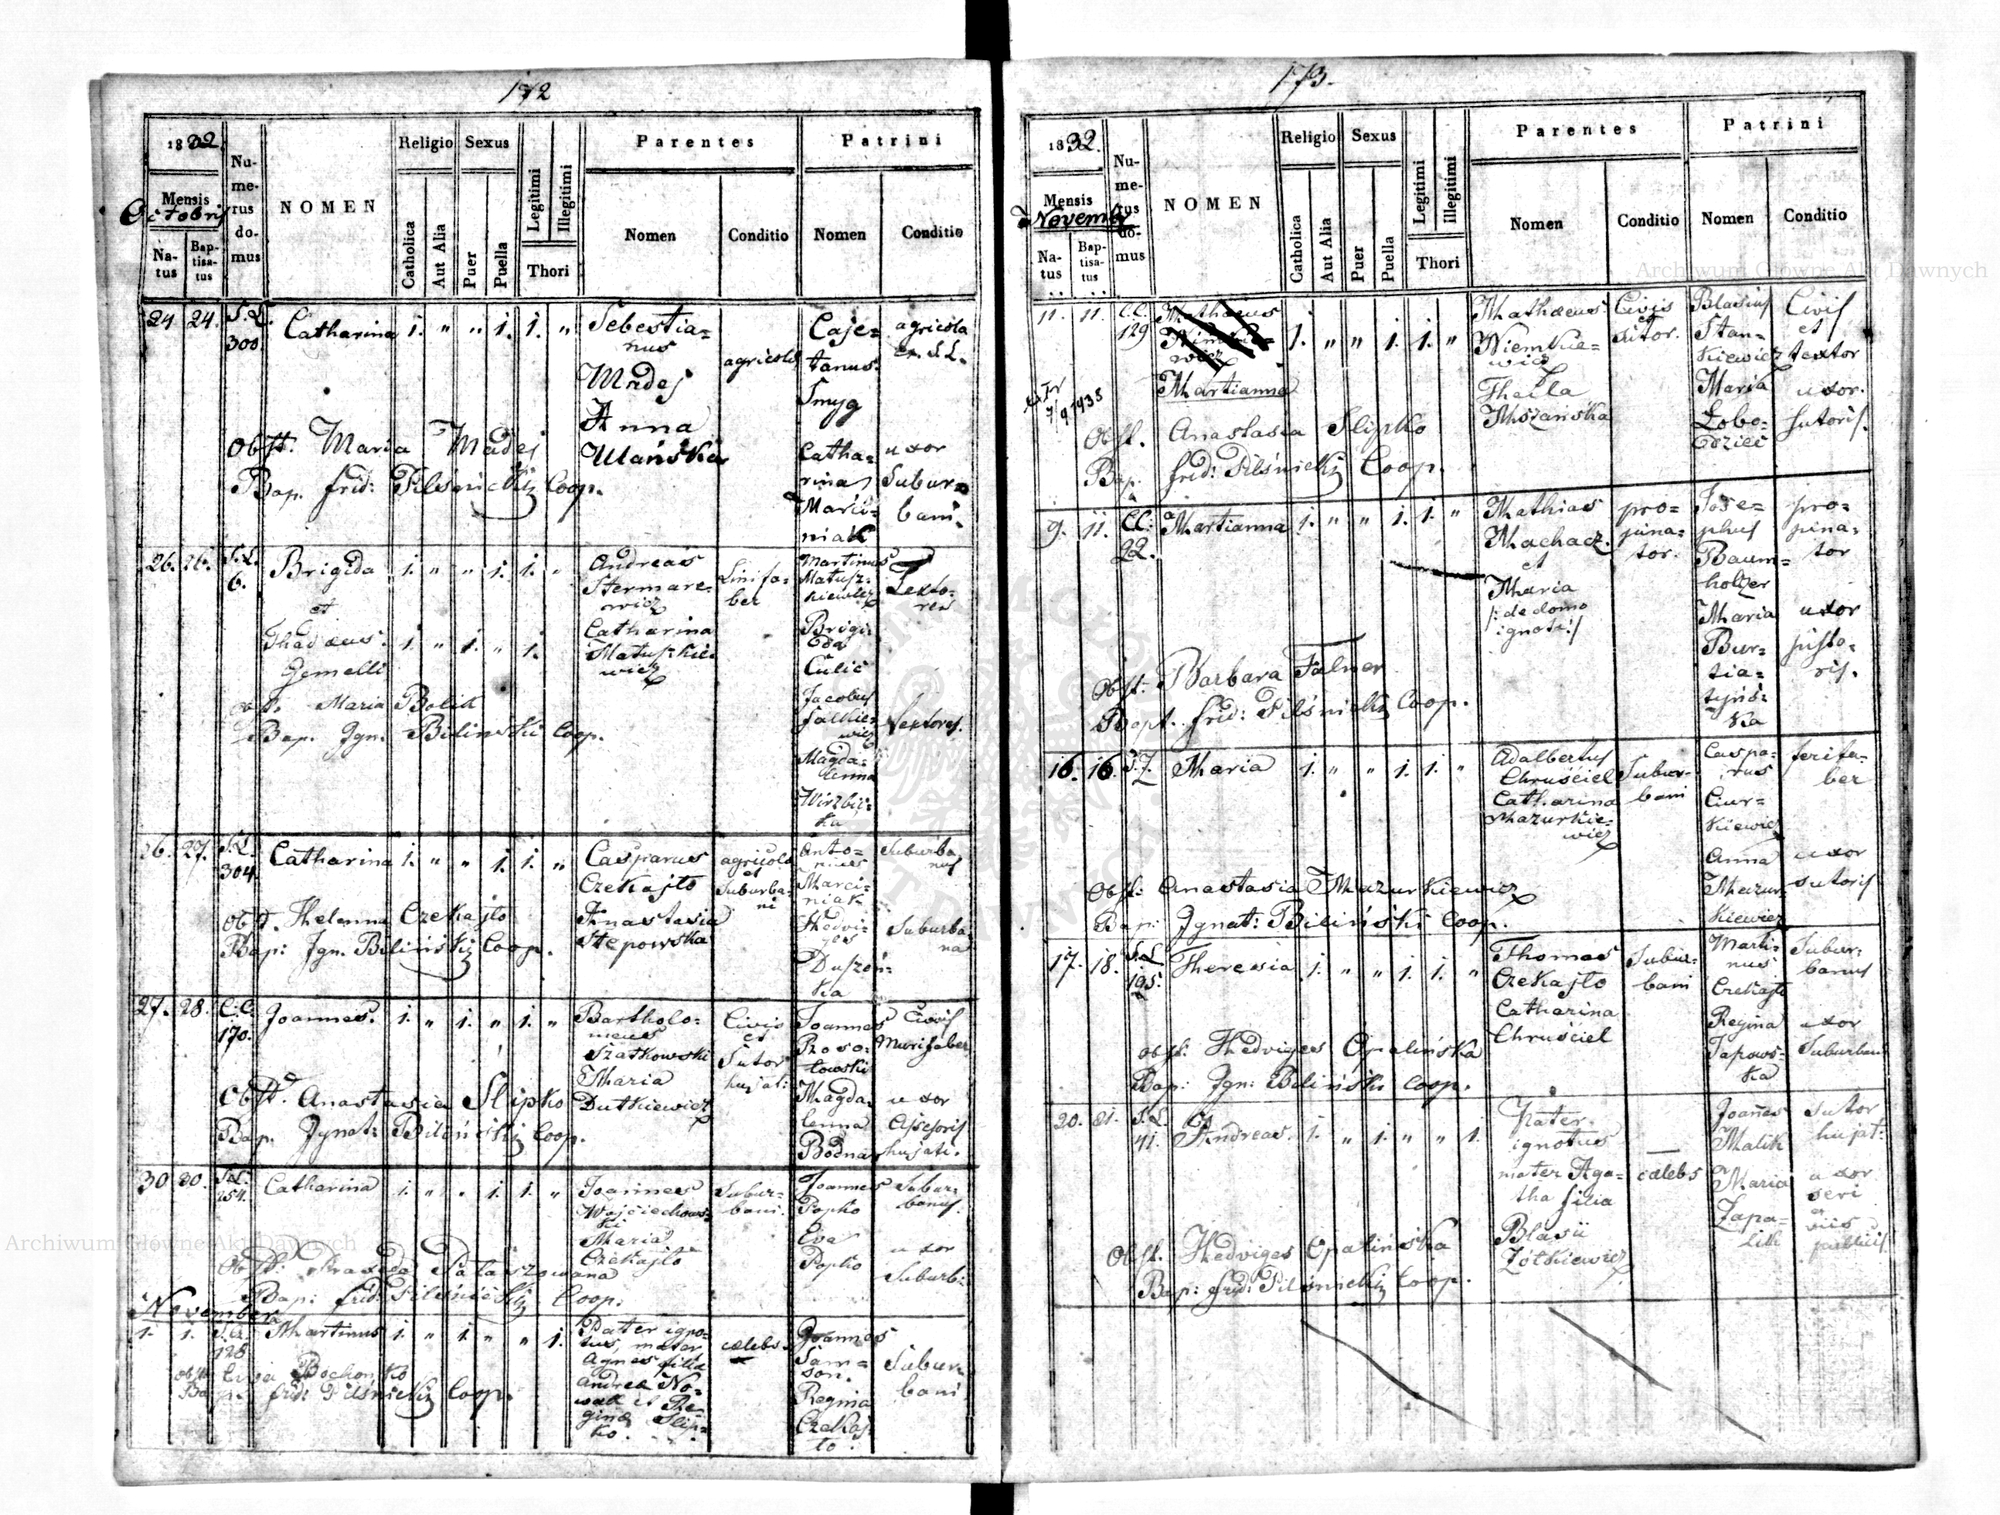 172
1832.
Mensis
Octobris
Natus
Baptisatus
Numerus domus
NOMEN
Religio
Catholica
Aut Alia
Sexus
Puer
Puella
Legitimi
Illegitimi
Thori
Parentes
Nomen
Conditio
Patrini
Nomen
Conditio
24 24. S.L. 300.
Catharina 1. " " 1. 1. "
Sebestia=
nus
Madej
Anna
Ulańska
agricola
Caje=
tanus
Smyg
Catha=
rina
Marci=
niak
agricola
ex S.L.
uxor
Subur=
bani.
Obst. Maria Madej
Bap. frid: Pilśnicki Coop.
26. 26. S.L. 6.
Brigida 1. " " 1. 1. "
et
Thadæus 1. " 1. " 1.
Gemelli
Andreas
Stermare=
wicz
Catharina
Matuszkie
wicz
Linifa=
ber
Martinus
Matusz=
kiewicz
Brigi=
da
Culic
Jacobus
Falkie=
wicz
Magda=
lenna
Wirzbic=
ka
Texto=
res
textores.
obst. Maria Bolik
Bap. Jgn. Biliński Coop.
26. 27. S.L. 304.
Catharina 1. " " 1. 1. "
Casparus
Czekajło
Anastasia
Stepowska
agricola
et
Suburba=
ni
Anto=
nius
Marci=
niak
Hedvi=
ges
Duszón=
ka
Suburba
nus
Suburba=
na
Obst. Helenna Czekajło
Bap: Jgn. Biliński Coop.
27. 28. C.C. 170.
Joannes. 1. " 1. " 1. "
Bartholo=
meus
Szatkowski
Maria
Dutkiewicz
Civis
et
Sutor
hujat:
Joannes
Rzoso=
łowski
Magda=
lenna
Bodnar
Civis
Murifaber
uxor
Assesoris
hujati.
Obst. Anastasia Slipko
Bap. Jgnat: Biliński Coop.
30 30. S.L. 254.
Catharina 1. " " 1. 1. "
Joannes
Wojciechows=
ki
Maria
Czekajło
Subur=
bani.
Joannes
Popko
Eva
Popko
Subur=
banus.
uxor
Suburb:
Bap: frid: Pilśnicki Coop.
November
1. 1. 128
Martinus 1. " 1. " " 1.
Pater igno=
tus, mater
Agnes filia
Andreæ No=
wak et Re=
ginæ Slip=
ko.
cælebs.
Joannes
Sam=
son.
Regina
Czekaj=
ło.
Subur=
bani
Bap. frid: Pilśnicki Coop.
173.
1832.
Mensis
Novembr
Natus
Baptisatus
Numerus domus
NOMEN
Religio
Catholica
Aut Alia
Sexus
Puer
Puella
Legitimi
Illegitimi
Thori
Parentes
Nomen
Conditio
Patrini
Nomen
Conditio
11. 11. C.C. 129
Mathæus
Martianna 1. " " 1. 1. "
Mathæus
Niemkie=
wicz
Thecla
Mszańska
Civis
et
sutor.
Blasius
Stan=
kiewicz
Maria
Łobo=
dzieć
Civis
et
textor
uxor.
sutoris.
Obst. Anastasia Slipko
Bap. frid: Pilśnicki Coop.
9. 11. C.C. 22.
Martianna 1. " " 1. 1. "
Mathias
Machacz.
et
Maria
/:de domo
ignota:/
pro=
pina=
tor.
Jose=
phus
Baum=
holzer
Maria
Bur=
tia=
tyńs=
ka
pro=
pina=
tor
uxor
pisto=
ris.
Obst. Barbara Falner
Bapt. frid: Pilśnicki Coop.
16. 16.
Maria 1. " " 1. 1. "
Adalbertus
Chruściel
Catharina
Mazurkie=
wicz
Subur=
bani
Caspa=
rus
Ciur=
kiewicz
Anna
Mazur=
kiewicz
ferifa=
ber
uxor
sutoris
Obst: Anastasia Mazurkiewicz
Bap: Jgnat: Biliński Coop.
17. 18. S.L. 195.
Theresia 1. " " 1. 1. "
Thomas
Czekajło
Catharina
Chruściel
Subur=
bani
Marti=
nus
Czekajło
Regina
Papows=
ka
Subur=
banus
uxor
Suburbani
obst: Hedviges Opalińska
Bap: Jgn: Biliński Coop.
20. 21. S.L. 41.
Andreas. 1. " 1. " " 1.
Pater
ignotus
mater Aga=
tha filia
Blasii
Zółkiewicz
cælebs
Joañes
Malik
Maria
Zapa=
lik
Sutor
hujat:
uxor
Obst. Hedviges Opalińska
Bap: frid: Pilśnicki Coop.
Archiwum Główne Akt Dawnych
Archiwum Główne Akt Dawnych